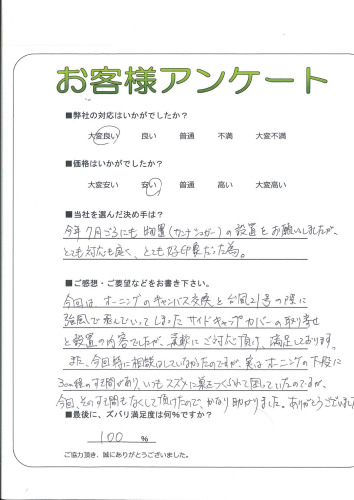 お客様アンケート
■弊社の対応はいかがでしたか?
大変良い 良い 普通 不満 大変不満
■価格はいかがでしたか?
大変安い 安い 普通 高い 大変高い
■当社を選んだ決め手は?
今年7月ごろにも物置(ヨドコウ)の設置をお願いしましたが、
とても対応も良く、とても好印象だった為。
■ご感想・ご要望などをお書き下さい。
今回は、オーニングのキャンバス交換と台風21号の際に
強風で飛んでいってしまったサイドキャップカバーの取り寄せ
と設置の内容でしたが、柔軟にご対応頂け、満足しております。
また、今回特に相談はしていなかったのですが、実はオーニングの下段に
3cm程のすき間があり、いつもスズメに巣をつくられて困していたのですが、
今回、そのすき間もなくして頂けたので、かなり助かりました。ありがとうございました
■最後に、ズバリ満足度は何%ですか?
100 %
ご協力頂き、誠にありがとうございました。